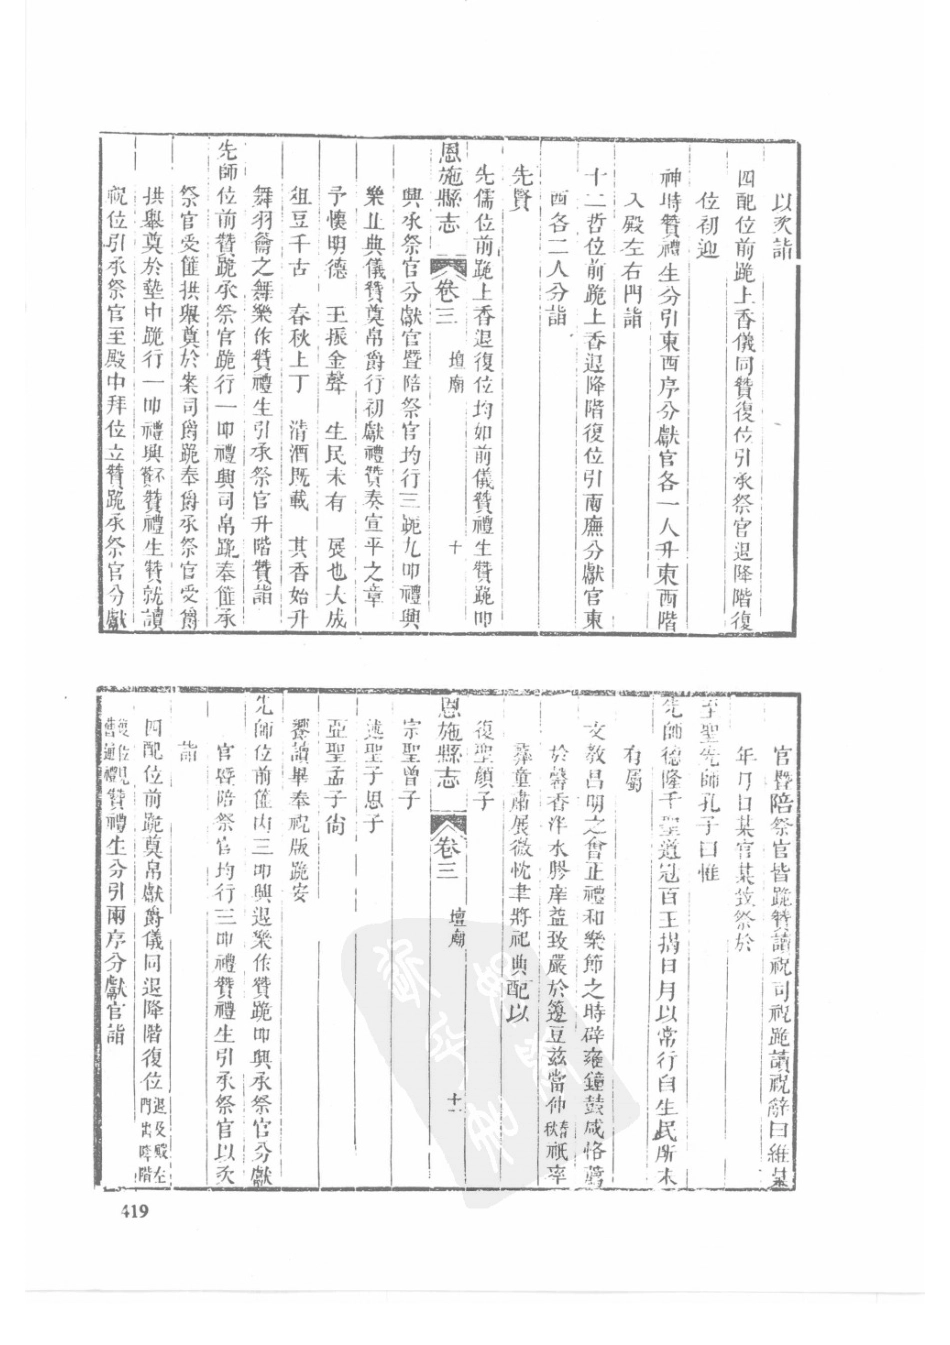 以次詣
四配位前跪上香儀同贊復位引承祭官退降階復
位初迎
神時贊禮生分引東西序分獻官各一人升東西階
入殿左右門詣
十二哲位前跪上香退降階復位引兩廡分獻官東
西各二人分詣
先賢
先儒位前跪上香退復位均如前儀贊禮生贊跪叩
恩施縣志
卷三
壇廟
十
興承祭官分獻官暨陪祭官均行三跪九叩禮興
樂止典儀贊奠帛爵行初獻禮贊奏宣平之章
予懷明德 玉振金聲 生民未有 展也大成
俎豆千古 春秋上丁 清酒既載 其香始升
舞羽籥之舞樂作贊禮生引承祭官升階贊詣
先師位前贊跪承祭官跪行一叩禮興司帛跪奉篚承
祭官受篚拱舉奠於案司爵跪奉爵承祭官受爵
拱舉奠於墊中跪行一叩禮興不贊贊禮生贊就讀
祝位引承祭官至殿中拜位立贊跪承祭官分獻
官暨陪祭官皆跪贊讀祝司祝跪讀祝辭曰維某
年月日某官某致祭於
至聖先師孔子曰惟
先師德隆千聖道冠百王揭日月以常行自生民所未
有屬
文教昌明之會正禮和樂節之時辟雍鐘鼓咸恪薦
於馨香泮水膠庠益致嚴於籩豆茲當仲春秋祇率
彝章肅展微忱聿將祀典配以
復聖顏子
恩施縣志
卷三
壇廟
十一
宗聖曾子
述聖子思子
亞聖孟子尚
饗讀畢奉祝版跪安
先師位前篚內三叩興退樂作贊跪叩興承祭官分獻
官暨陪祭官均行三叩禮贊禮生引承祭官以次
詣
四配位前跪奠帛獻爵儀同退降階復位退及殿左門出降階
贊禮生分引兩序分獻官詣
419